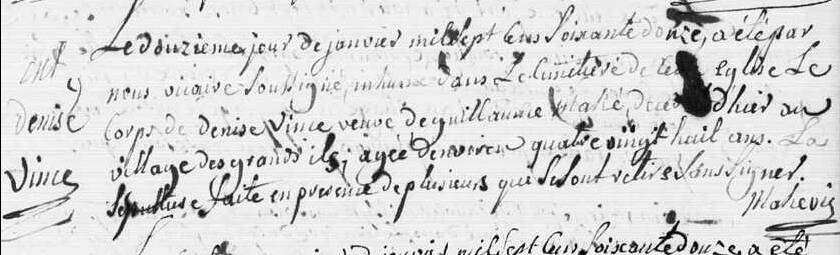 Le douzieme jour de janvier mil sept cens soixante douze, a été par
ent
nous vicaire soussigné, inhumé dans Le cimetiere de cette eglise Le
denise
Corps de denise Vince veuve de guillaume Mahé decedé d'hier au
village des grands ils, agée denviron quatre vingt huit ans. La
Vince
Sepulture faite en presence de plusieurs qui se sont retirés sans signer.
Mahé vic
janvier mil sept cens soixante douze, a été